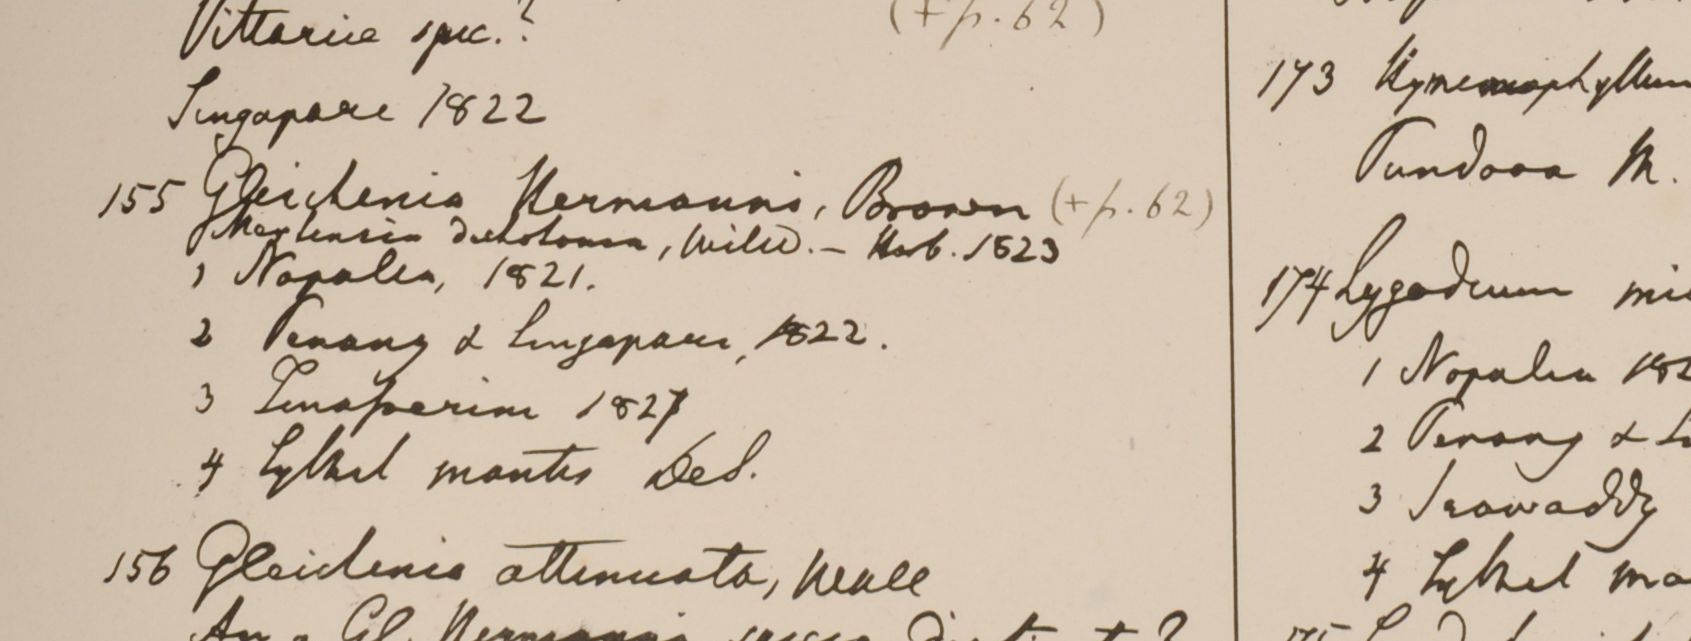 Vittaria spec.? (+p. 62)
Singapore 1822
155 Gleichenia Hermanni, Brown (+p. 62)
Mertensia dichotoma, Willd. – Herb. 1823
1 Napalia, 1821.
2 Penang & Singapore, 1822.
3 Tenasserim 1827
4 Sylhet montis Deb.
156 Gleichenia attenuata, Wall
An a Gl. Hermanni species distincta?
173 Hymenophyllum
Pundooa M.
174 Lygodium mic
1 Napalia 182
2 Penang & Si
3 Irawaddy
4 Sylhet mo
175